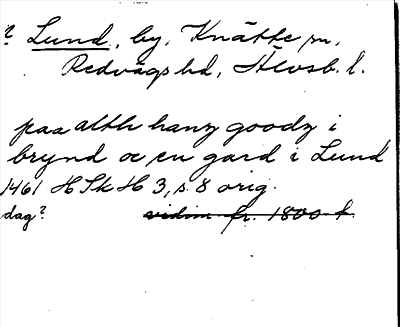 ? Lund, by, Knätte sn,
Redvägs hd, Älvsb. l.
paa alth hanz goodz i
brynd oc en gard i Lund
1461 HSkH 3, s. 8 orig.
dag? vidim fr. 1800 t.